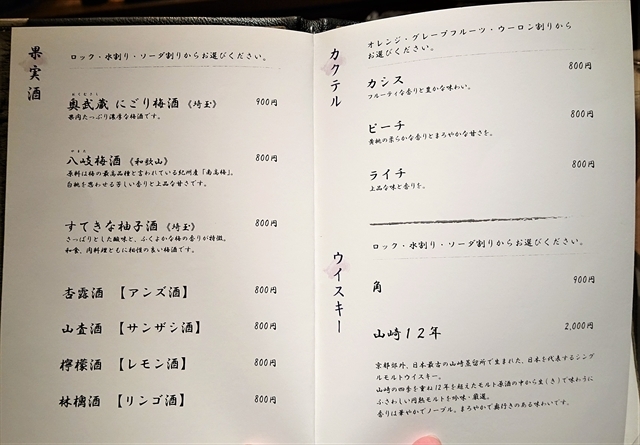 果実酒
ロック・水割り・ソーダ割りからお選びください。
奥武蔵 にごり梅酒 《埼玉》 900円
果肉たっぷり濃厚な梅酒です。
八岐梅酒 《和歌山》 800円
原料は梅の最高品種と言われている紀州産「南高梅」。
白桃を思わせる芳しい香りと上品な甘さです。
すてきな柚子酒 《埼玉》 800円
さっぱりとした酸味と、ふくよかな梅の香りが特徴。
和食、肉料理ともに相性の良い梅酒です。
杏露酒 【アンズ酒】 800円
山査酒 【サンザシ酒】 800円
檸檬酒 【レモン酒】 800円
林檎酒 【リンゴ酒】 800円
カクテル
オレンジ・グレープフルーツ・ウーロン割りから
お選びください。
カシス 800円
フルーティな香りと豊かな味わい。
ピーチ 800円
黄桃の柔らかな香りとまろやかな甘さを。
ライチ 800円
上品な味と香りを。
ウイスキー
ロック・水割り・ソーダ割りからお選びください。
角 900円
山崎12年 2,000円
京都郊外、日本最古の山崎蒸留所で生まれた、日本を代表するシング
ルモルトウイスキー。
山崎の四季を重ね12年を超えたモルト原酒の中から生(き)で味わうに
ふさわしい円熟モルトを吟味・厳選。
香りは華やかでノーブル。まろやかで奥行きのある味わいです。